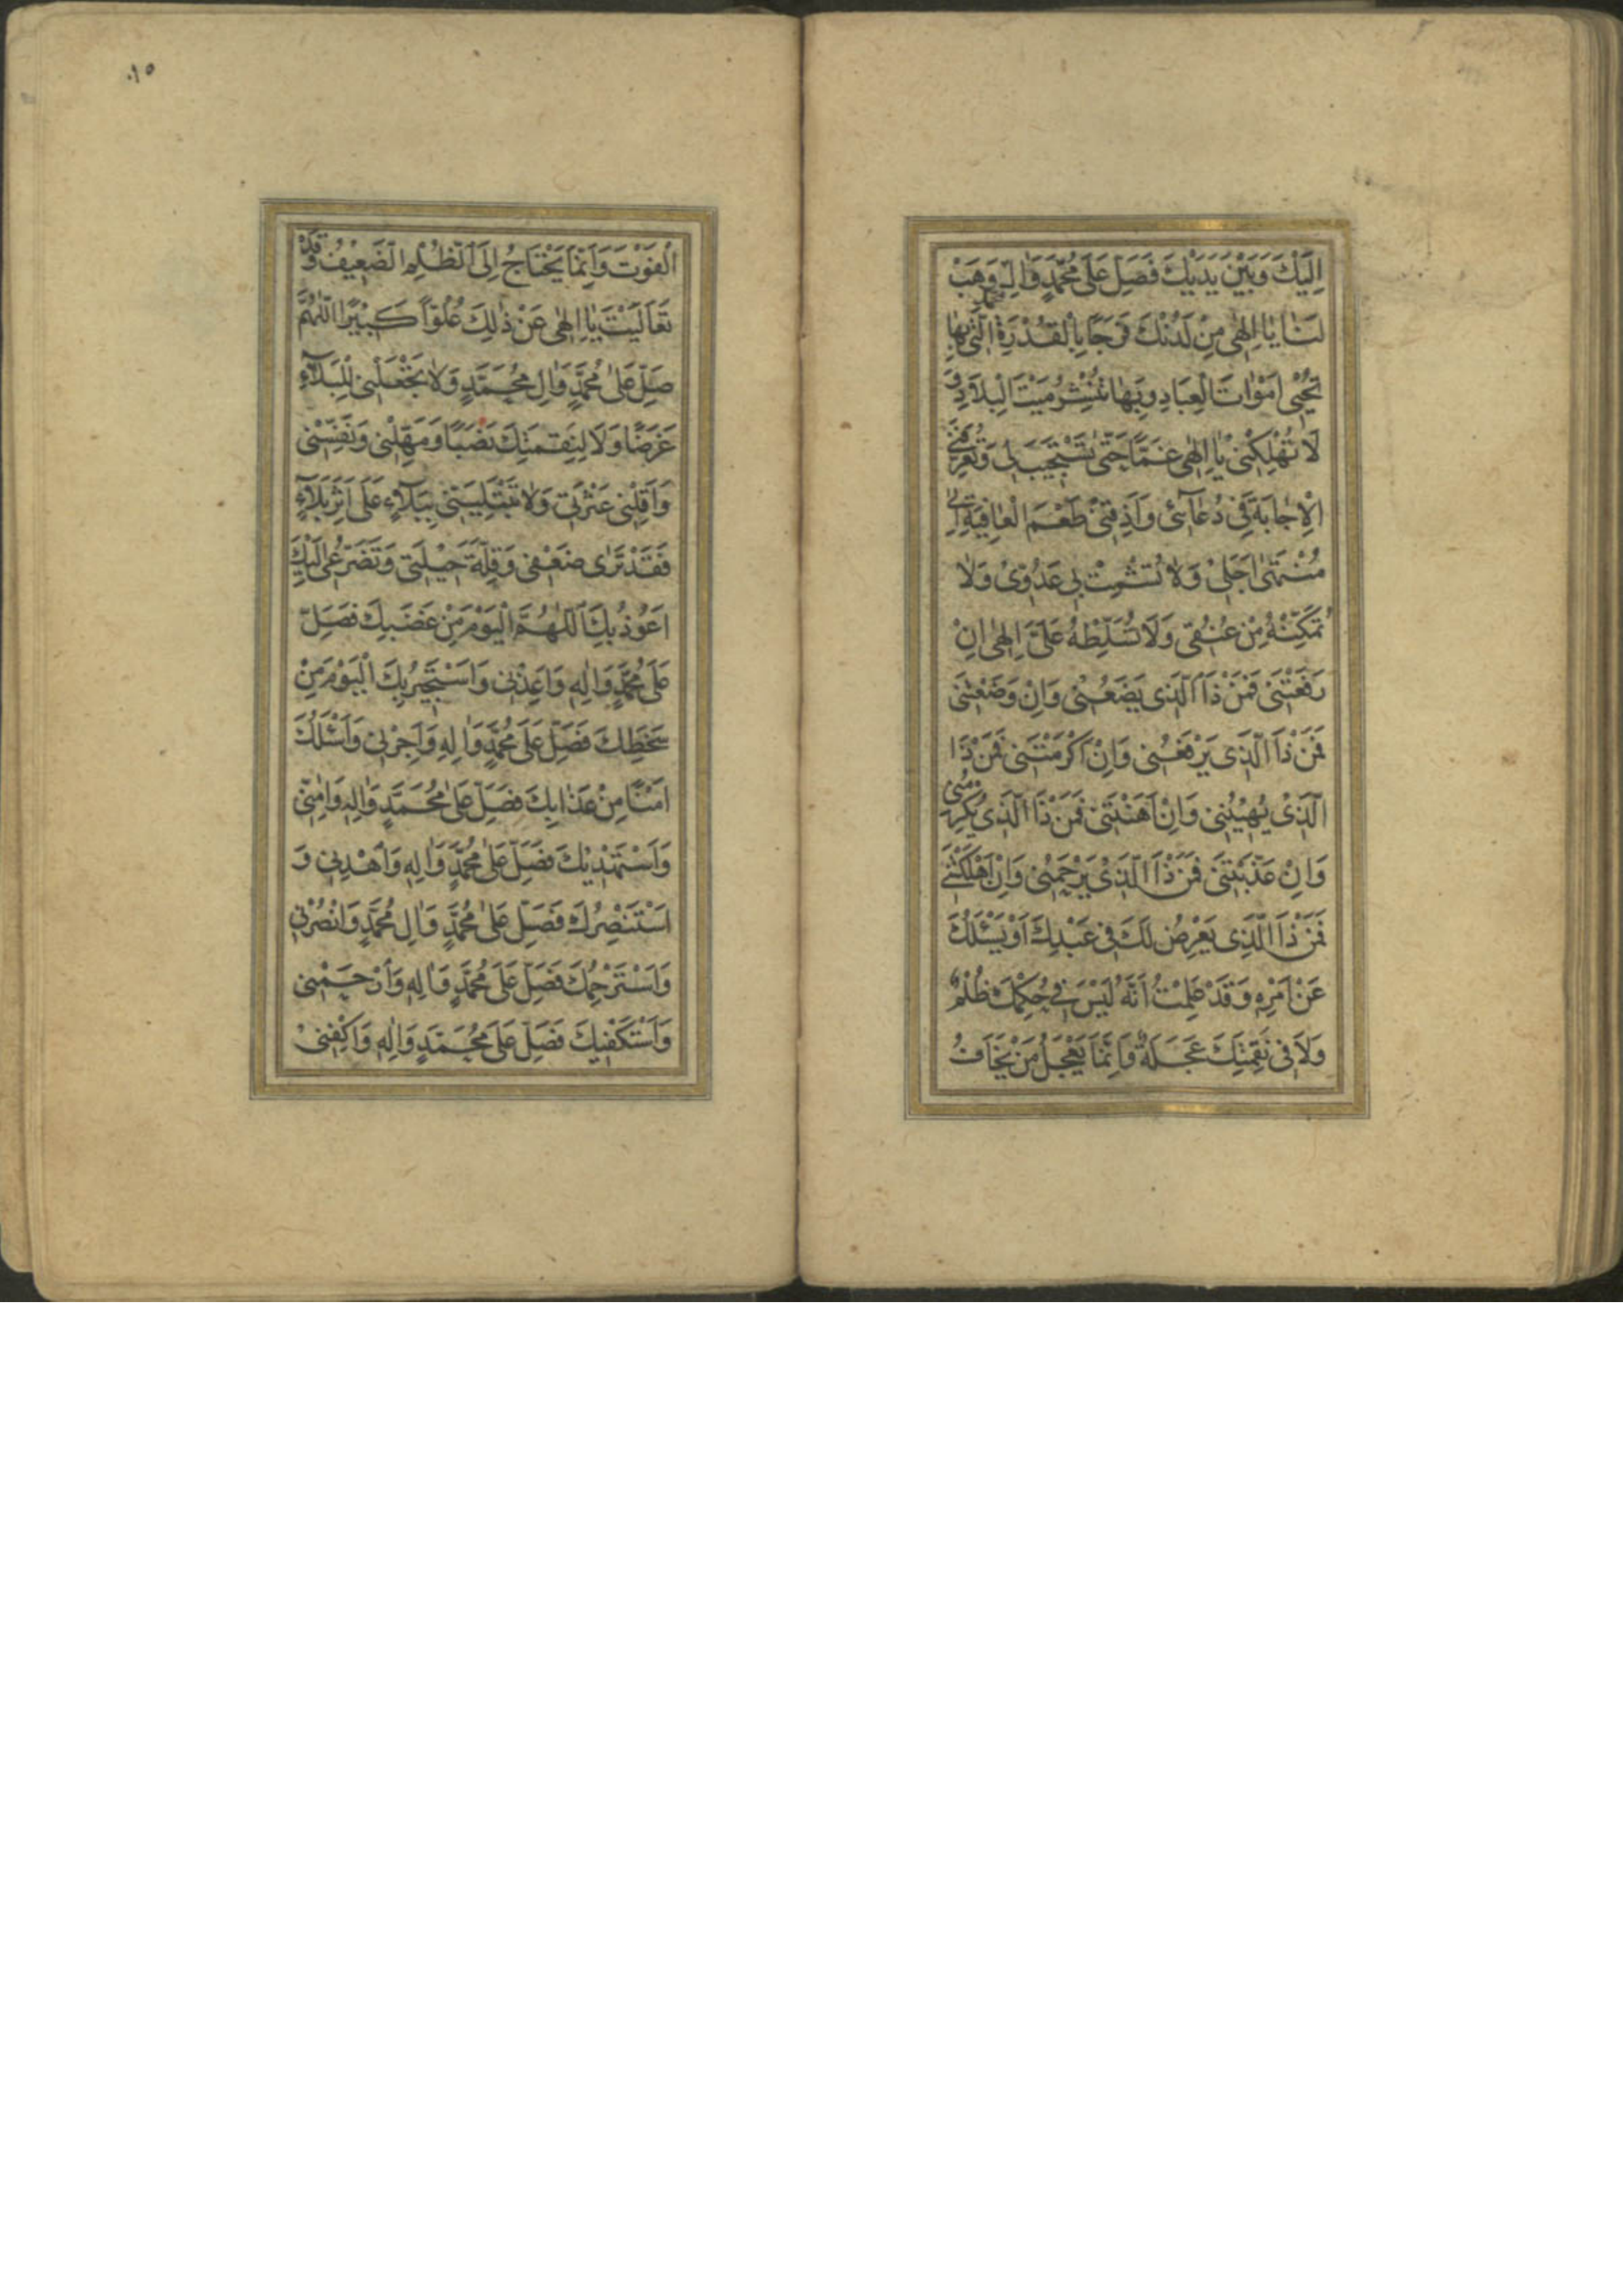 اِلَيْكَ وَبَيْنَ يَدَيْكَ فَصَلِّ عَلٰى مُحَمَّدٍ وَاٰلِ مُحَمَّدٍ وَهَبْ
لَنَا يٰا اِلٰهٰى مِنْ لَدُنْكَ فَرَجًا بِالْقُدْرَةِ الَّتٰى بِهٰا
تُحْيِى اَمْوٰاتَ الْعِبَادِ وَبِهٰا تَنْشُرُ مَيْتَ الْبِلَادِ وَ
لَا تُهْلِكْنٰى يٰا اِلٰهٰى غَمًّا حَتّٰى تَسْتَجٖيبَ لٖى وَتُعَرِّفَنٖى
الْاِجٰابَةَ فٖى دُعَآئٖى وَاَذِقْنٖى طَعْمَ الْعٰافِيَةِ اِلٰى
مُنْتَهٰى اَجَلٖى وَلٰا تُشْمِتْ بٖى عَدُوّٖى وَلٰا
تُمَكِّنْهُ مِنْ عُنُقٖى وَلَا تُسَلِّطْهُ عَلَىَّ اِلٰهٖى اِنْ
رَفَعْتَنٖى فَمَنْ ذَا الَّذٖى يَضَعُنٖى وَاِنْ وَضَعْتَنٖى
فَمَنْ ذَا الَّذٖى يَرْفَعُنٖى وَاِنْ اَكْرَمْتَنٖى فَمَنْ ذَا
الَّذٖى يُهٖينُنٖى وَاِنْ اَهَنْتَنٖى فَمَنْ ذَا الَّذٖى يُكْرِمُنٖى
وَاِنْ عَذَّبْتَنٖى فَمَنْ ذَا الَّذٖى يَرْحَمُنٖى وَاِنْ اَهْلَكْتَنٖى
فَمَنْ ذَا الَّذٖى يَعْرِضُ لَكَ فٖى عَبْدِكَ اَوْ يَسْئَلُكَ
عَنْ اَمْرِهٖ وَقَدْ عَلِمْتُ اَنَّهُ لَيْسَ فٖى حُكْمِكَ ظُلْمٌ
وَلَا فٖى نَقِمَتِكَ عَجَلَةٌ وَاِنَّمَا يَعْجَلُ مَنْ يَخَافُ
الْفَوْتَ وَاِنَّمَا يَحْتَاجُ اِلَى الظُّلْمِ الضَّعٖيفُ وَقَدْ
تَعَالَيْتَ يٰا اِلٰهٖى عَنْ ذٰلِكَ عُلُوًّا كَبٖيْرًا اَللّٰهُمَّ
صَلِّ عَلٰى مُحَمَّدٍ وَاٰلِ مُحَمَّدٍ وَلٰا تَجْعَلْنٖى لِلْبَلَآءِ
غَرَضًا وَلَا لِنِقِمَتِكَ نَصَبًا وَمَهِّلْنٖى وَنَفِّسْنٖى
وَاَقِلْنٖى عَثْرَتٖى وَلٰا تَبْتَلِيَنّٖى بِبَلَآءٍ عَلٰى اَثَرِ بَلَآءٍ
فَقَدْ تَرٰى ضَعْفٖى وَقِلَّةَ حٖيْلَتٖى وَتَضَرُّعٖى اِلَيْكَ
اَعُوْذُ بِكَ اَللّٰهُمَّ الْيَوْمَ مِنْ غَضَبِكَ فَصَلِّ
عَلٰى مُحَمَّدٍ وَاٰلِهٖ وَاَعِذْنٖى وَاَسْتَجٖيْرُ بِكَ الْيَوْمَ مِنْ
سَخَطِكَ فَصَلِّ عَلٰى مُحَمَّدٍ وَاٰلِهٖ وَاَجِرْنٖى وَاَسْئَلُكَ
اَمْنًا مِنْ عَذٰابِكَ فَصَلِّ عَلٰى مُحَمَّدٍ وَاٰلِهٖ وَاٰمِنّٖى
وَاَسْتَهْدٖيْكَ فَصَلِّ عَلٰى مُحَمَّدٍ وَاٰلِهٖ وَاهْدِنٖى وَ
اَسْتَنْصِرُكَ فَصَلِّ عَلٰى مُحَمَّدٍ وَاٰلِ مُحَمَّدٍ وَانْصُرْنٖى
وَاَسْتَرْحِمُكَ فَصَلِّ عَلٰى مُحَمَّدٍ وَاٰلِهٖ وَارْحَمْنٖى
وَاَسْتَكْفٖيكَ فَصَلِّ عَلٰى مُحَمَّدٍ وَاٰلِهٖ وَاكْفِنٖى